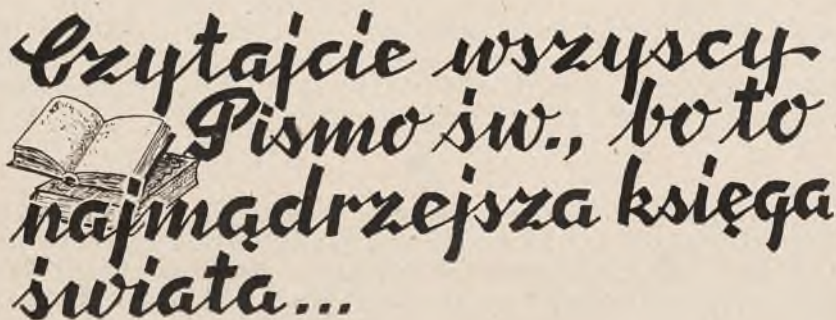 Czytajcie wszyscy
Pismo św., bo to
najmądrzejsza księga
świata...